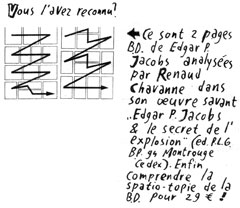 Vous l'avez reconnu?
Ce sont 2 pages
B.D. de Edgar P.
Jacobs analysées
par Renaud
Chavanne dans
son oeuvre savant
„Edgar P. Jacobs
& le secret de l'
explosion" (ed. P.L.G.
BP. 94 Montrouge
Cedex). Enfin
comprendre la
spatio-topie de la
B.D. pour 29 € !